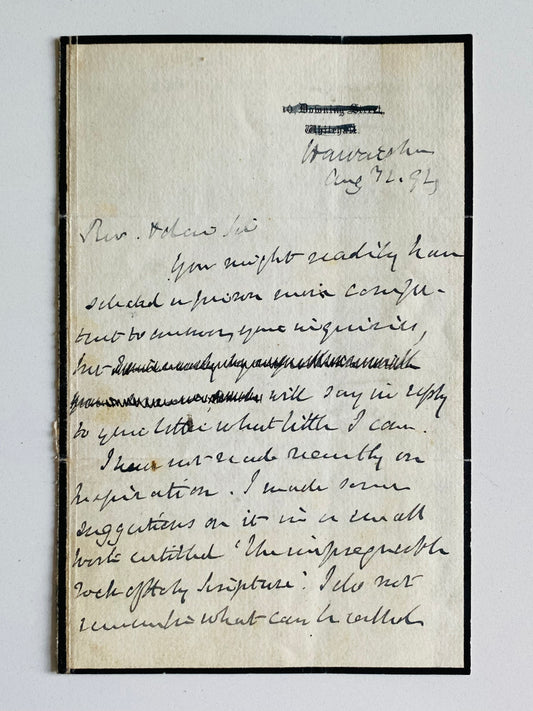 10, Downing Street,
Whitehall.
Hawarden
Aug
Rev. & dear Sir
You might readily have
selected a person more compe-
tent to answer your inquiries,
but
will say in reply
to your letter what little I can.
I have not read recently on
Inspiration. I made some
suggestions on it in a small
work entitled 'The impregnable
rock of Holy Scripture'. I do not
remember what can be called